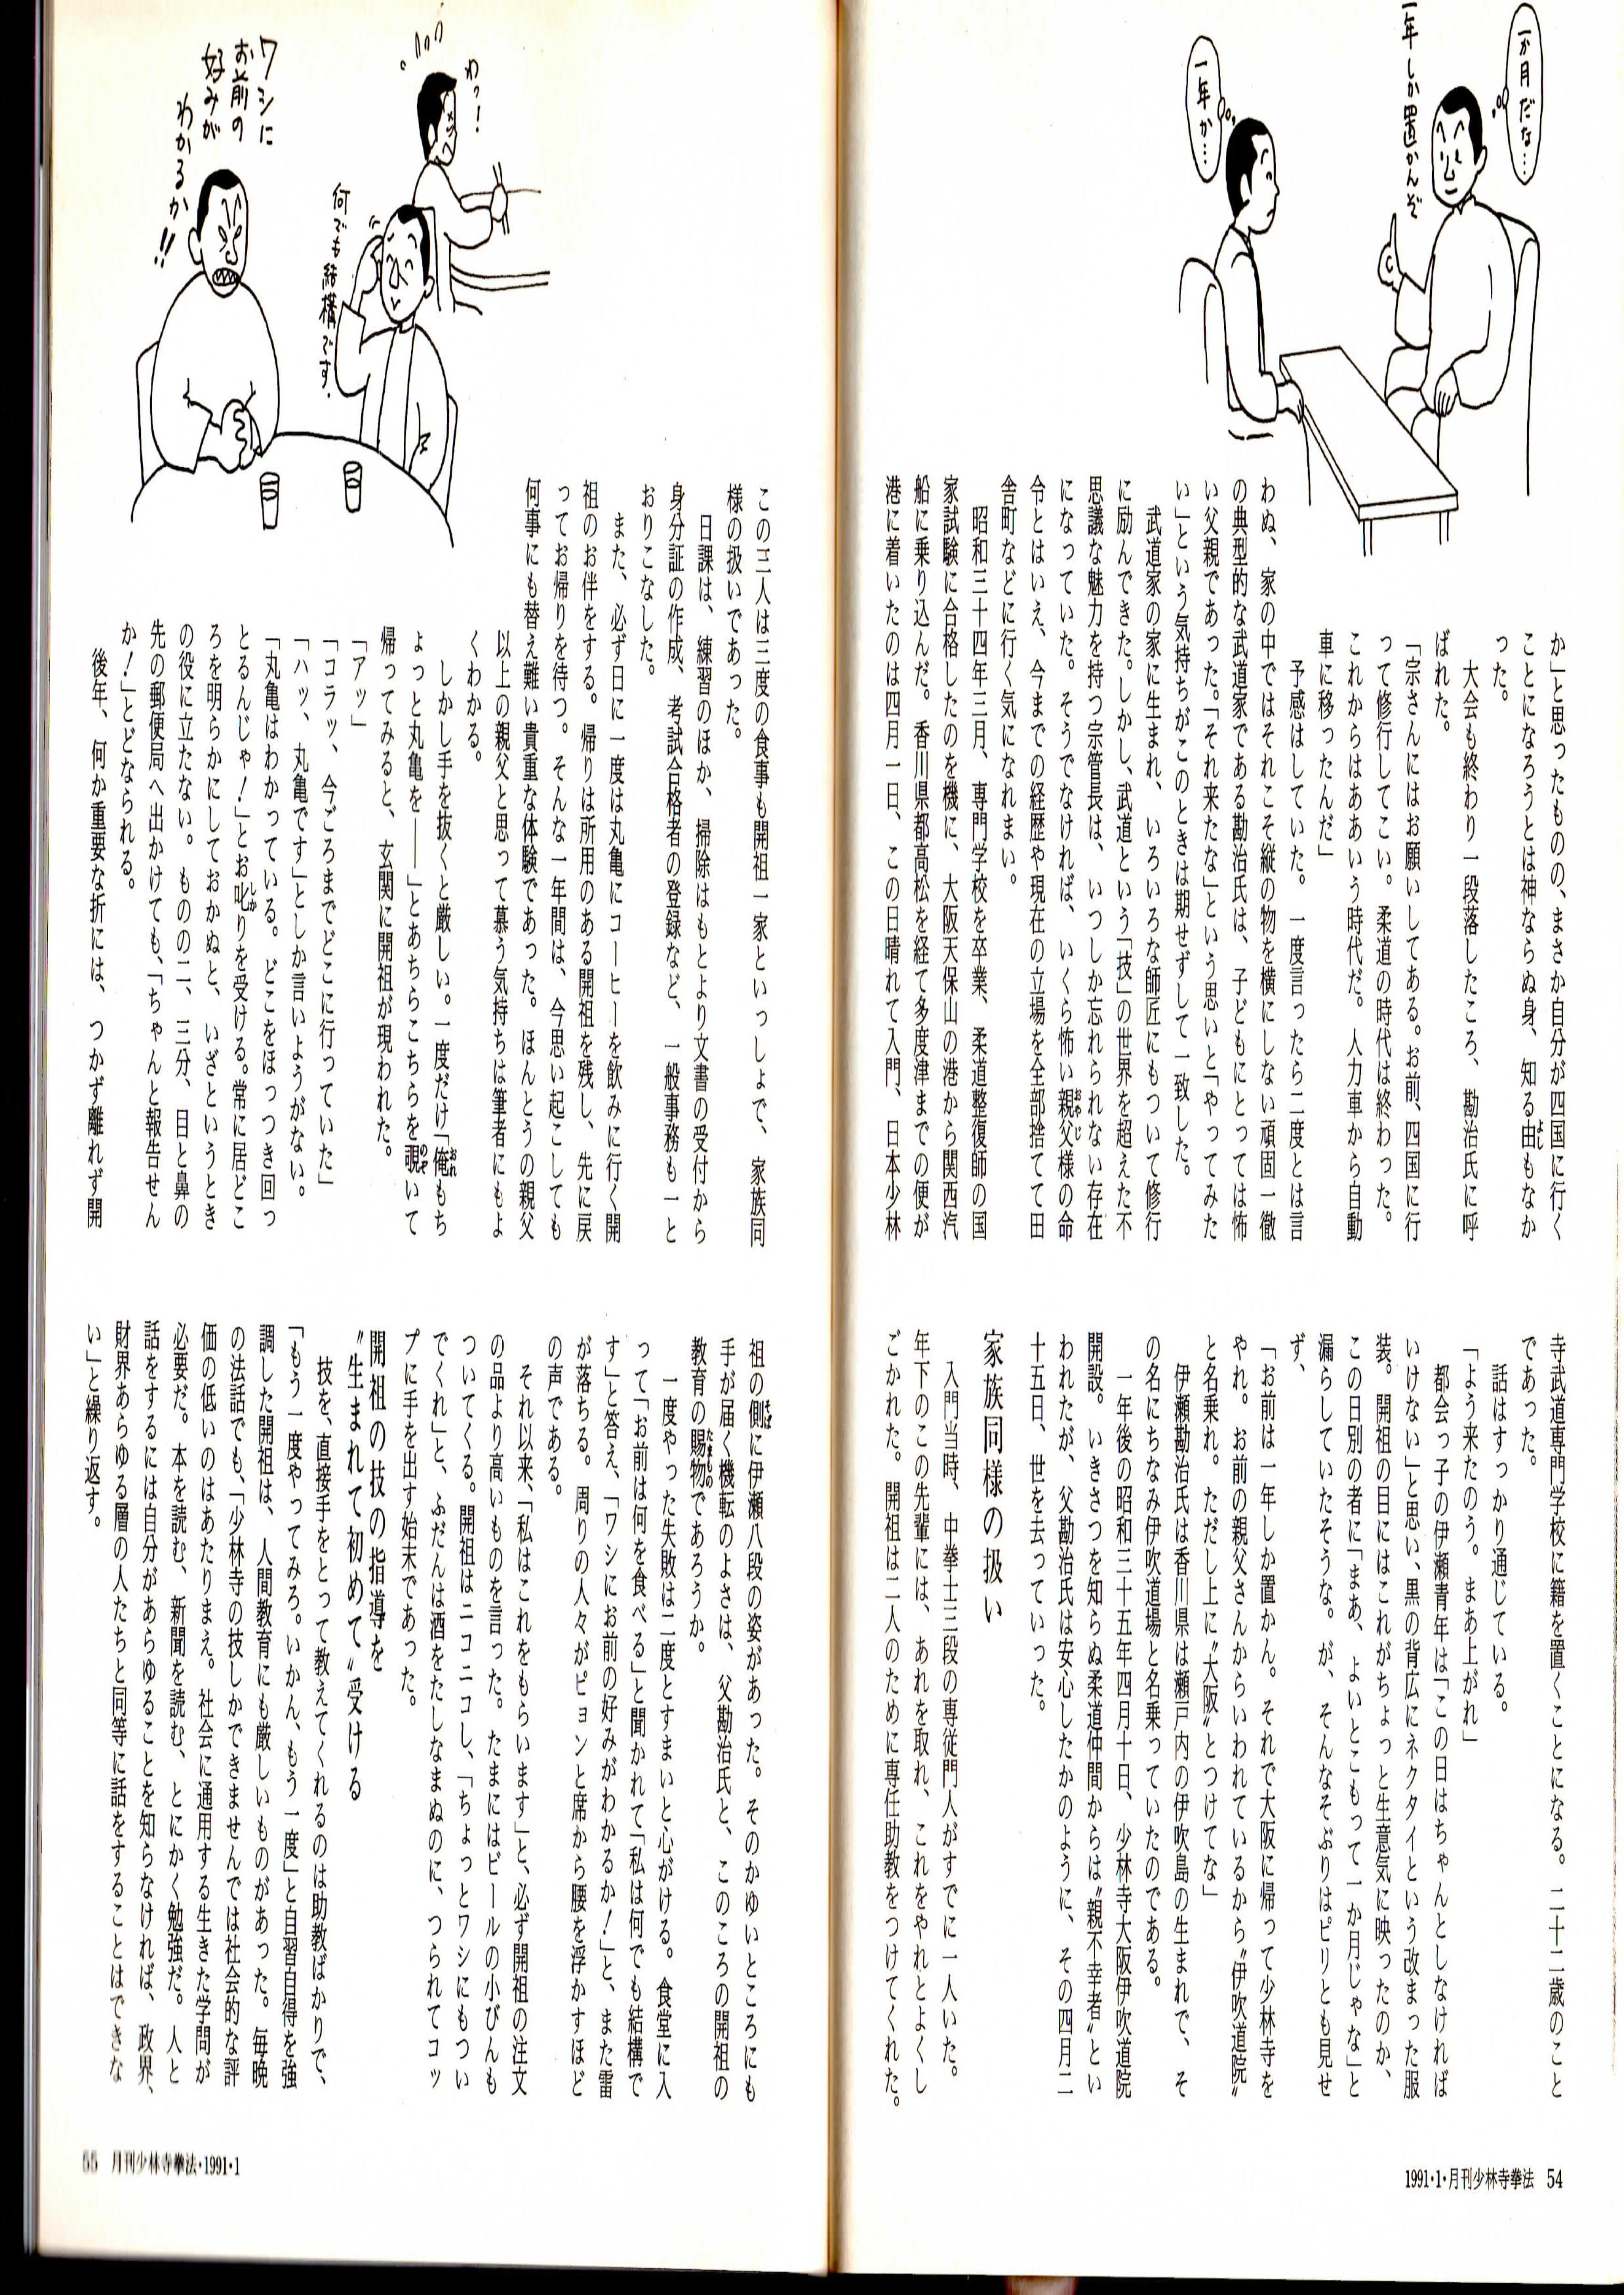 一か月だな…
一年しか置かんぞ
一年か…
か」と思ったものの、まさか自分が四国に行く
ことになろうとは神ならぬ身、知る由もなか
った。
大会も終わり一段落したころ、勘治氏に呼
ばれた。
「宗さんにはお願いしてある。お前、四国に行
って修行してこい。柔道の時代は終わった。
これからはああいう時代だ。人力車から自動
車に移ったんだ」
予感はしていた。一度言ったら二度とは言
わぬ、家の中ではそれこそ縦の物を横にしない頑固一徹
の典型的な武道家である勘治氏は、子どもにとっては怖
い父親であった。「それ来たな」という思いと「やってみた
い」という気持ちがこのときは期せずして一致した。
武道家の家に生まれ、いろいろな師匠にもついて修行
に励んできた。しかし、武道という「技」の世界を超えた不
思議な魅力を持つ宗管長は、いつしか忘れられない存在
になっていた。そうでなければ、いくら怖い親父様の命
令とはいえ、今までの経歴や現在の立場を全部捨てて田
舎町などに行く気になれまい。
昭和三十四年三月、専門学校を卒業、柔道整復師の国
家試験に合格したのを機に、大阪天保山の港から関西汽
船に乗り込んだ。香川県都高松を経て多度津までの便が
港に着いたのは四月一日、この日晴れて入門、日本少林
寺武道専門学校に籍を置くことになる。二十二歳のこと
であった。
話はすっかり通じている。
「よう来たのう。まあ上がれ」
都会っ子の伊瀬青年は「この日はちゃんとしなければ
いけない」と思い、黒の背広にネクタイという改まった服
装。開祖の目にはこれがちょっと生意気に映ったのか、
この日別の者に「まあ、よいとこもって一か月じゃな」と
漏らしていたそうな。が、そんなそぶりはピリとも見せ
ず、
「お前は一年しか置かん。それで大阪に帰って少林寺を
やれ。お前の親父さんからいわれているから〝伊吹道院〟
と名乗れ。ただし上に〝大阪〟とつけてな」
伊瀬勘治氏は香川県は瀬戸内の伊吹島の生まれで、そ
の名にちなみ伊吹道場と名乗っていたのである。
一年後の昭和三十五年四月十日、少林寺大阪伊吹道院
開設。いきさつを知らぬ柔道仲間からは〝親不幸者〟とい
われたが、父勘治氏は安心したかのように、その四月二
十五日、世を去っていった。
家族同様の扱い
入門当時、中拳士三段の専従門人がすでに一人いた。
年下のこの先輩には、あれを取れ、これをやれとよくし
ごかれた。開祖は二人のために専任助教をつけてくれた。
1991・1・月刊少林寺拳法 54
わっ!
何でも結構です.
ワシに
お前の
好みが
わかるか!!
この三人は三度の食事も開祖一家といっしょで、家族同
様の扱いであった。
日課は、練習のほか、掃除はもとより文書の受付から
身分証の作成、考試合格者の登録など、一般事務も一と
おりこなした。
また、必ず日に一度は丸亀にコーヒーを飲みに行く開
祖のお伴をする。帰りは所用のある開祖を残し、先に戻
ってお帰りを待つ。そんな一年間は、今思い起こしても
何事にも替え難い貴重な体験であった。ほんとうの親父
以上の親父と思って慕う気持ちは筆者にもよ
くわかる。
しかし手を抜くと厳しい。一度だけ「俺もち
ょっと丸亀を――」とあちらこちらを覗いて
帰ってみると、玄関に開祖が現われた。
「アッ」
「コラッ、今ごろまでどこに行っていた」
「ハッ、丸亀です」としか言いようがない。
「丸亀はわかっている。どこをほっつき回っ
とるんじゃ!」とお叱りを受ける。常に居どこ
ろを明らかにしておかぬと、いざというとき
の役に立たない。ものの二、三分、目と鼻の
先の郵便局へ出かけても、「ちゃんと報告せん
か!」とどなられる。
後年、何か重要な折には、つかず離れず開
祖の側に伊瀬八段の姿があった。そのかゆいところにも
手が届く機転のよさは、父勘治氏と、このころの開祖の
教育の賜物であろうか。
一度やった失敗は二度とすまいと心がける。食堂に入
って「お前は何を食べる」と聞かれて「私は何でも結構で
す」と答え、「ワシにお前の好みがわかるか!」と、また雷
が落ちる。周りの人々がピョンと席から腰を浮かすほど
の声である。
それ以来、「私はこれをもらいます」と、必ず開祖の注文
の品より高いものを言った。たまにはビールの小びんも
ついてくる。開祖はニコニコし、「ちょっとワシにもつい
でくれ」と、ふだんは酒をたしなまぬのに、つられてコッ
プに手を出す始末であった。
開祖の技の指導を
〝生まれて初めて〟受ける
技を、直接手をとって教えてくれるのは助教ばかりで、
「もう一度やってみろ。いかん、もう一度」と自習自得を強
調した開祖は、人間教育にも厳しいものがあった。毎晩
の法話でも、「少林寺の技しかできませんでは社会的な評
価の低いのはあたりまえ。社会に通用する生きた学問が
必要だ。本を読む、新聞を読む、とにかく勉強だ。人と
話をするには自分があらゆることを知らなければ、政界、
財界あらゆる層の人たちと同等に話をすることはできな
い」と繰り返す。
55 月刊少林寺拳法・1991・1